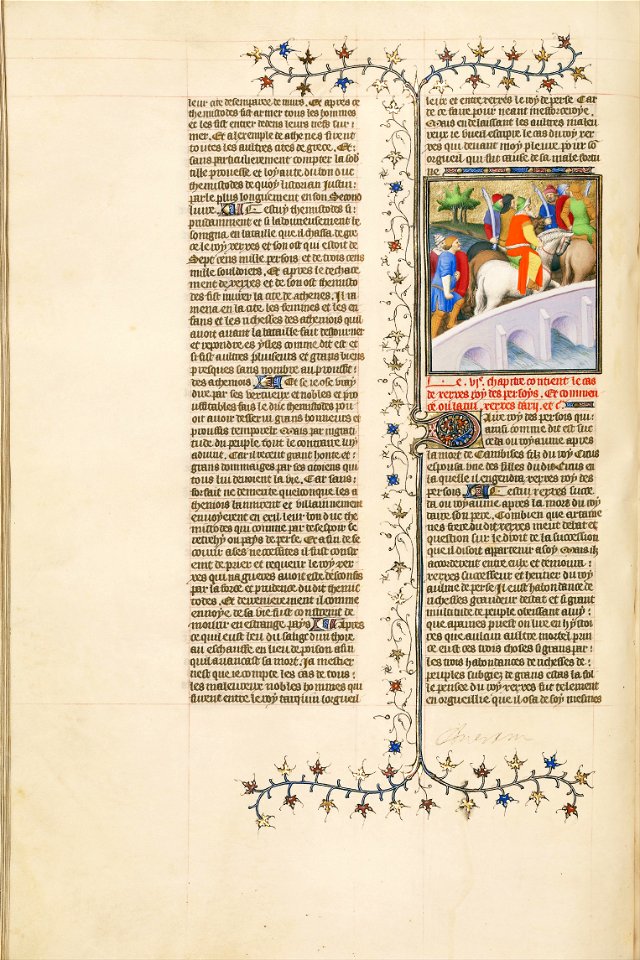 leur cite desemparee de murs. Et apres ce
themistodes fist armer tous les hommes
et les fist entrer dedens leurs nefs sur
mer. Et a lexemple de athenes firent
toutes les aultres cites de grece. Et
sans particulierement compter la sob
tille prouesse et loyaute du son duc
themistodes de quoy listorian Justin
parle plus longuement en son Second
livre. Cestuy themistodes si
prudamment et si laboureusement se
songna en bataille que il chasa de gre
ce le roy xerxes et son ost qui estoit de
Sept cens mille persois et de trois cens
mille souldoiers. Et apres le dechace
ment de xerxes et de son ost themisto
des fist murer la cite de athenes. Il ra
mena en la cite les femmes et les en
fans et les richesses des athenois quil
avoit avant la bataille fait destourner
et repondre es ysles comme dit est et
si fist aultres pluseurs et grans biens
presques sans nombre au prouffit
des athenois Et se je ose vray
dire par ses vertueux et nobles et prou
ufitables fais le duc themistodes pou
oit avoir desservi grans honneurs et
prouffis temporelz Mais par ingrati
tude du peuple tout le contraire luy
advint. Car il receut grant honte et
grans dommaiges par ses citoiens qui
tous lui devoient la vie. Car sans
forfait ne demerite quelconque les a
thenois bannirent et villainnement
envoyerent en exil leur bon duc the
mistodes qui comme par desespoir se
retrehy ou pays de perse. Et afin de se
courir a ses necessites il fust constr
aint de prier et requerir le roy xer
xes qui nagueres avoit este desconfis
par la force et prudence du dit themis
todes. Et derrenierement il comme
ennoye de sa vie fust constraint de
mourir en estrange pays Apres
ce quil eust beu du sang dun thore
au eschauffe en lieu de poison afin
quil avancast sa mort. Ja mestier
nest que je compte les cas de tous
les maleureux nobles hommes qui
furent entre le roy tarquin lorgueil
leux et entre xerxes le roy de perse Car
de ce faire pour neant mefforceroye
Mais en delaissant les aultres maleu
reux je vueil escripre le cas du roy xer
xes qui devant moy pleure pour so
orgueil qui fut cause de sa male fortu
ne
Le .vi.e chapitre contient le cas
de xerxes roy des persoys. Et commen
ce ou latin xerxes darij. et c.
Daire roy des persois qui
ainsi comme dit est suc
ceda ou royaume apres
la mort de Cambises filz du roy Cirus
espousa une des filles du dit Cirus en
la quelle il engendra xerxes roy des
persois Cestui xerxes succe
da ou royaume apres la mort du roy
daire son pere. Combien que artame
nes frere du dit xerxes meut debat et
question sur le droit de la succession
que il disoit apartenir a soy Mais ilz
acorderent entre eulx et demoura
xerxes successeur et heritier du roy
aulme de perse Il eust habondance de
richesses grandeur destat et si grant
multitude de peuple obeissant a luy
que apaines puet on lire en hystoi
res que aulcun aultre mortel prin
ce eust ces trois choses si grans par
les trois habondances de richesses de
peuples subgiez de grans estas la fol
le pensee du roy xerxes fut telement
en orgueillie que il osa de soy mesmes